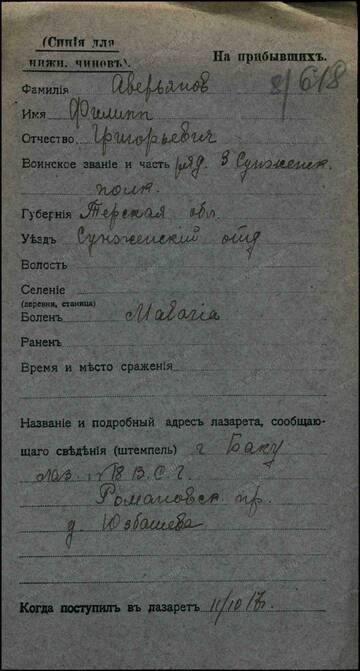 (Синія для
нижн. чиновъ).
На прибывшихъ.
8/618
Фамилія Аверьянов
Имя Филипп
Отчество Григорьевич
Воинское званіе и часть ряд. 3 Сунженск.
полк.
Губернія Терская обл.
Уѣздъ Сунженский отд
Волость
Селеніе
(деревня, станица)
Боленъ Malaria
Раненъ
Время и мѣсто сраженія
Названіе и подробный адресъ лазарета, сообщаю-
щаго свѣдѣнія (штемпель) г Баку
лаз. №18 В.С.Г.
Романовск. пр.
д. Юзбашева
Когда поступилъ въ лазаретъ 11/10